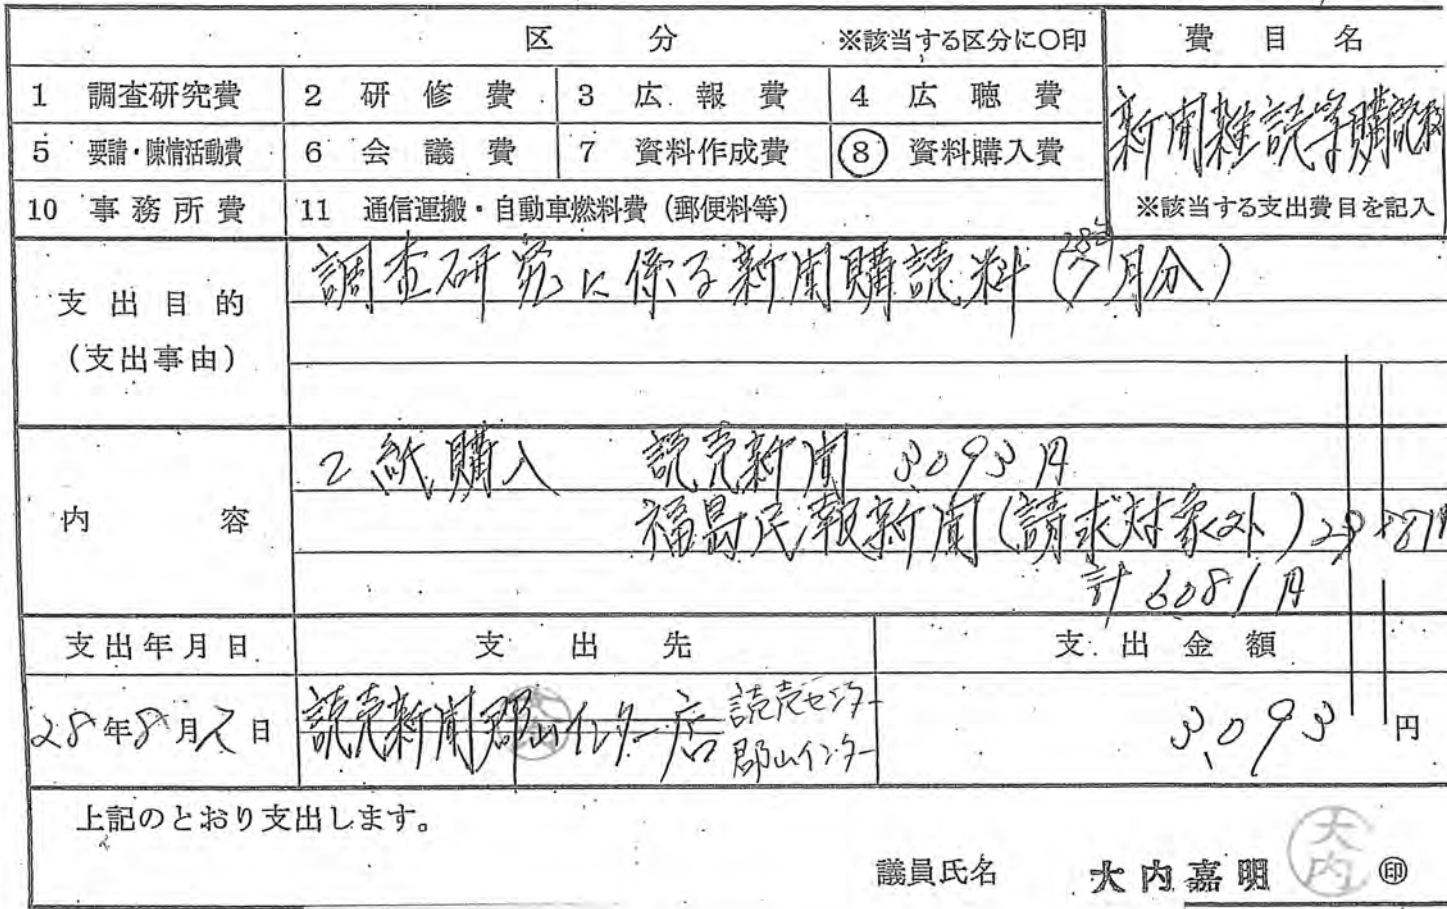 区 分 ※該当する区分に○印 費 目 名
1 調査研究費 2 研 修 費 3 広 報 費 4 広 聴 費
5 要請・陳情活動費 6 会 議 費 7 資料作成費 ⑧ 資料購入費
新聞雑誌等購読料
10 事 務 所 費 11 通信運搬・自動車燃料費（郵便料等） ※該当する支出費目を記入
支 出 目 的
（支出事由）
調査研究に係る新聞購読料（7月分）
内 容
2紙購入 読売新聞 3093円
福島民報新聞（請求対象外）2988円
計6081円
支出年月日 支 出 先 支 出 金 額
28年8月2日 読売新聞郡山インター店 読売センター
郡山インター
3,093 円
上記のとおり支出します。
議員氏名 大内嘉明 大内 ㊞